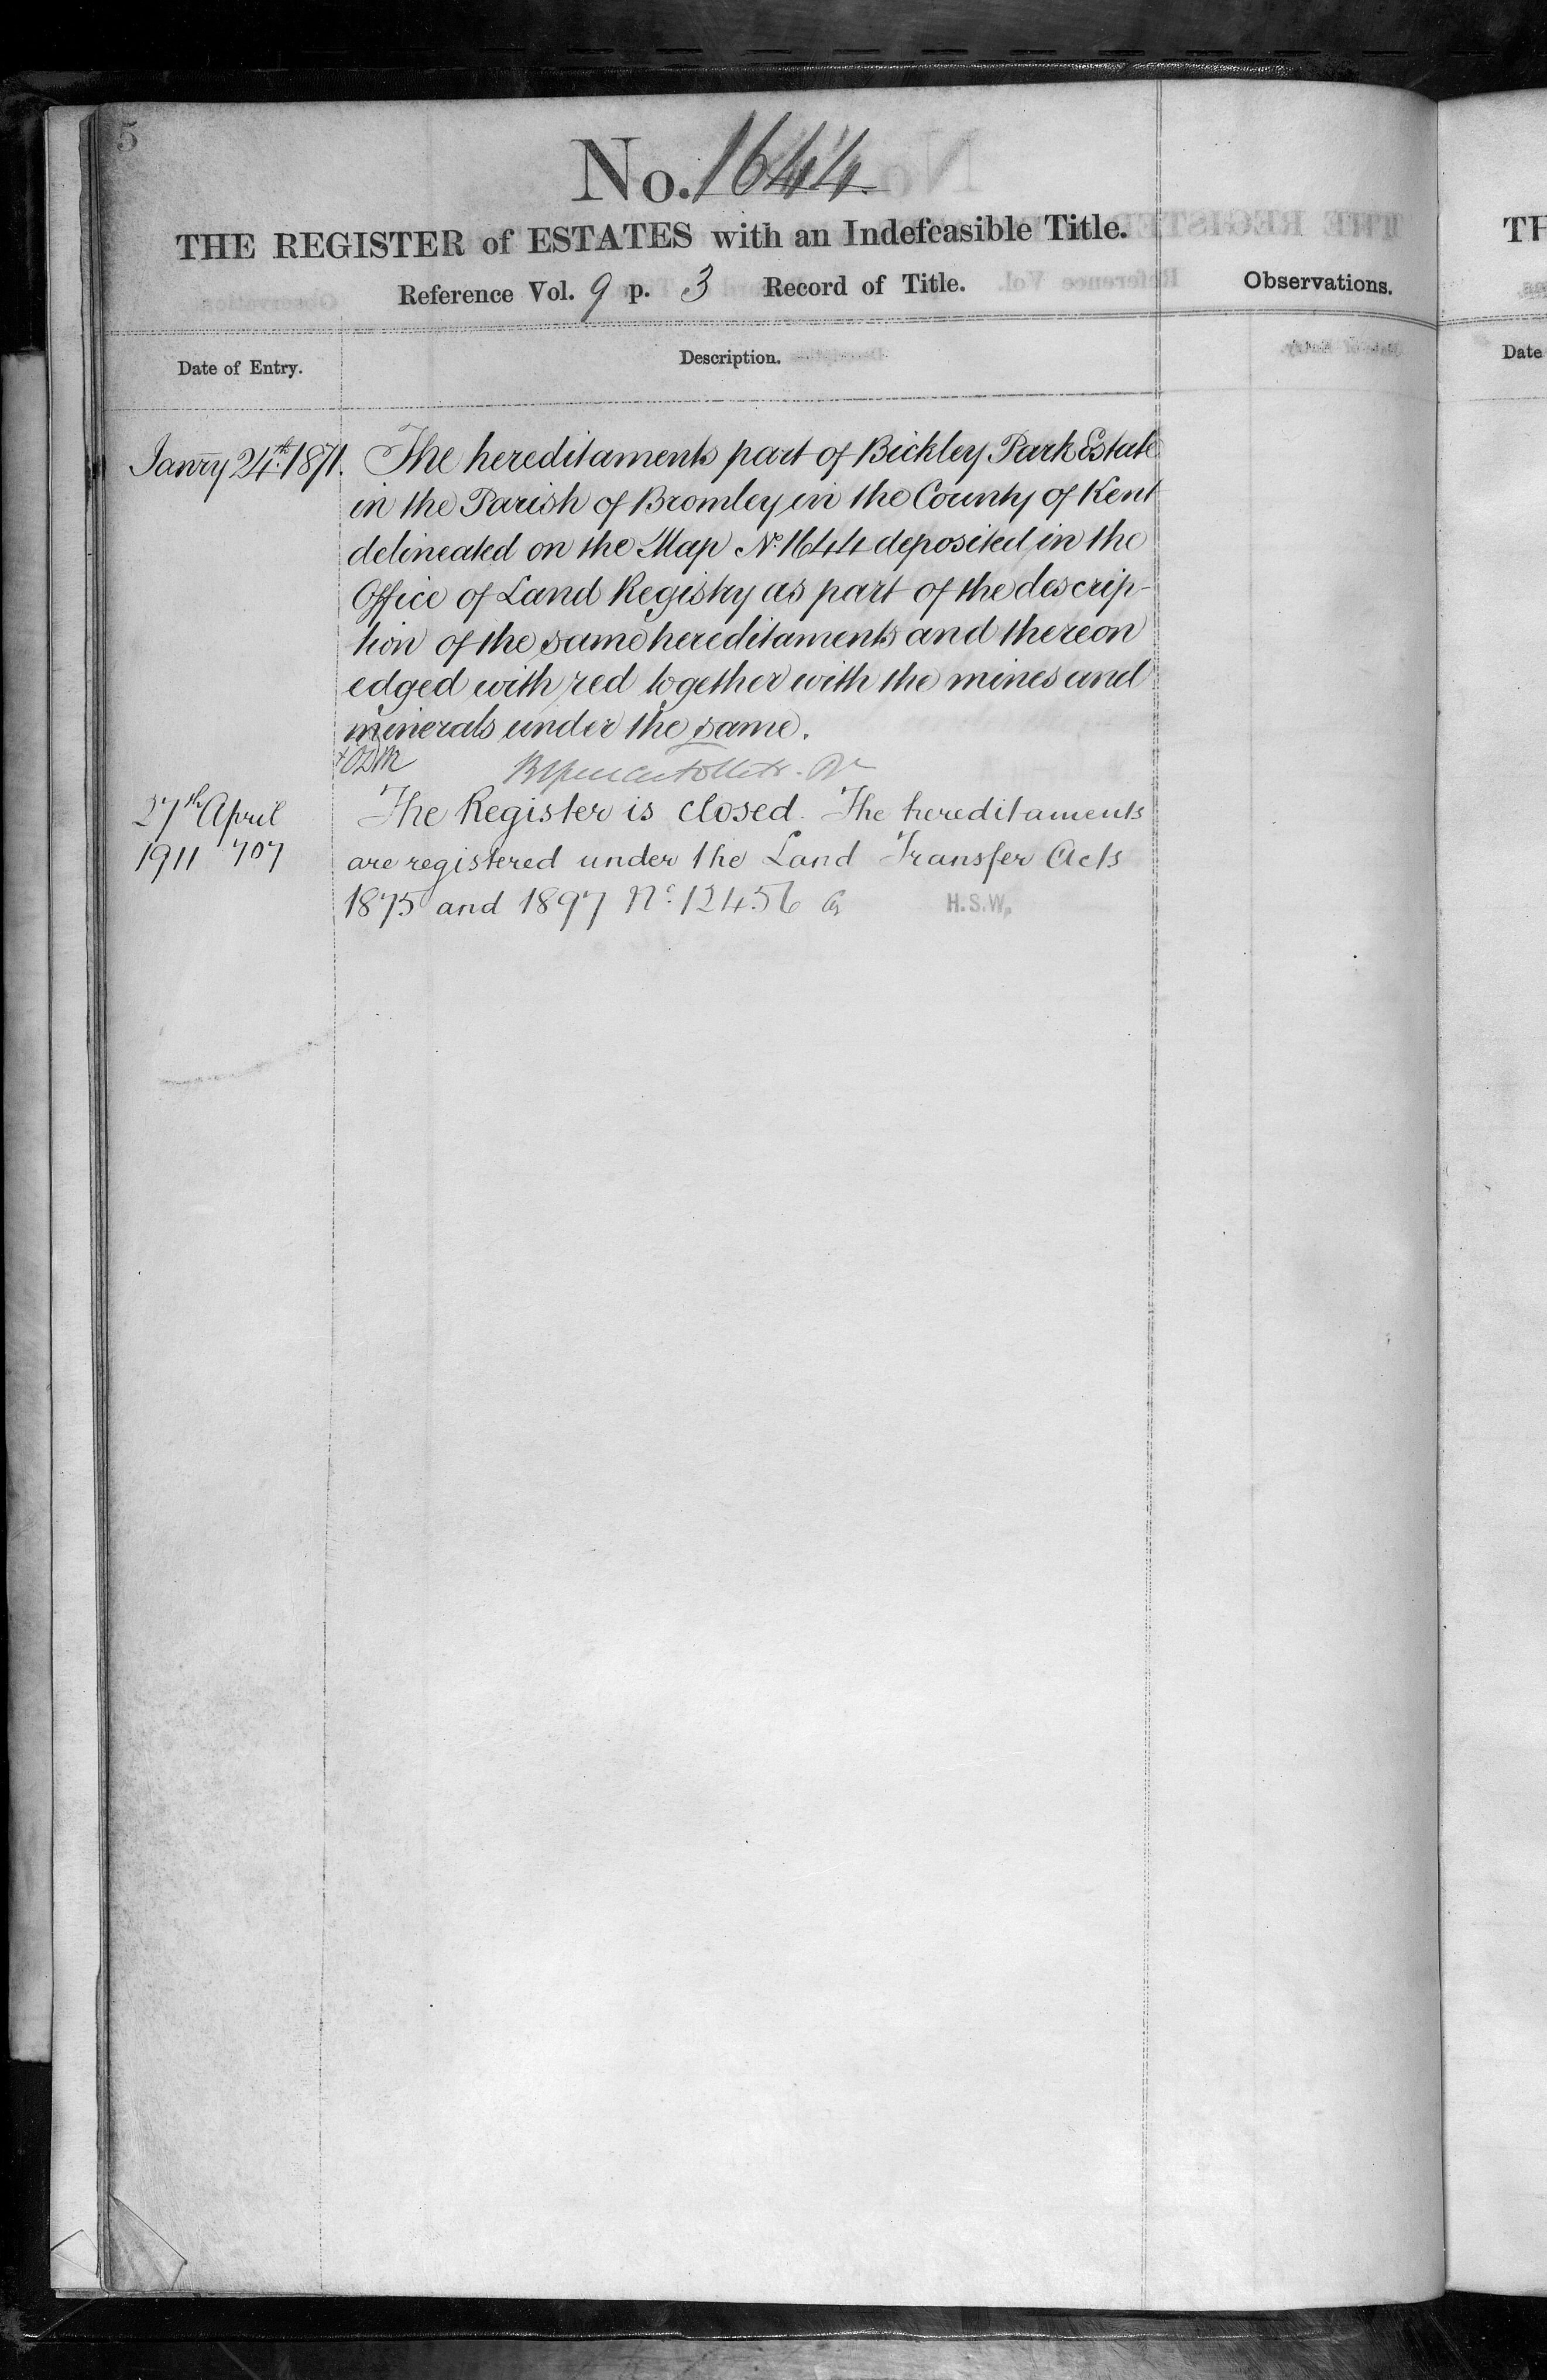 5
No. 1644.
THE REGISTER of ESTATES with an Indefeasible Title.
Reference Vol. 9 p. 3 Record of Title.
Observations.
Date of Entry.
Description.
Janry 24th. 1871. The hereditaments part of Bickley Park Estate
in the Parish of Bromley in the County of Kent
delineated on the Map No. 1644 deposited in the
Office of Land Registry as part of the descrip-
tion of the same hereditaments and thereon
edged with red together with the mines and
minerals under the same.
27th April The Register is closed. The hereditaments
1911 707 are registered under the Land Transfer Acts
1875 and 1897 No. 12456
H.S.W.
TH
Date